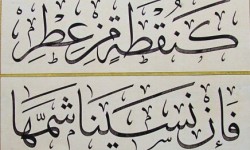 كَنُقْطَةٍ مِنْ عِطْرٍ
فَإِنْ نَسِينَا شَمَّهَا